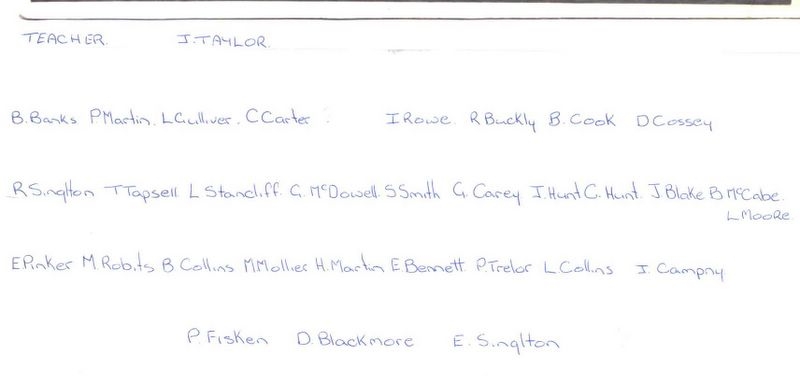 TEACHER. J. TAYLOR.
B. Banks P Martin. L Gulliver. C Carter. I Rowe. R Buckly B. Cook D Cossey
R Singlton T Tapsell L Stancliff. G. McDowell. S Smith G. Carey I. Hunt C. Hunt. J Blake B McCabe.
L Moore.
E Pinker M Robits B Collins M. Mollier H. Martin E Bennett. P. Trelor L Collins I. Campny
P. Fisken D. Blackmore E. Singlton